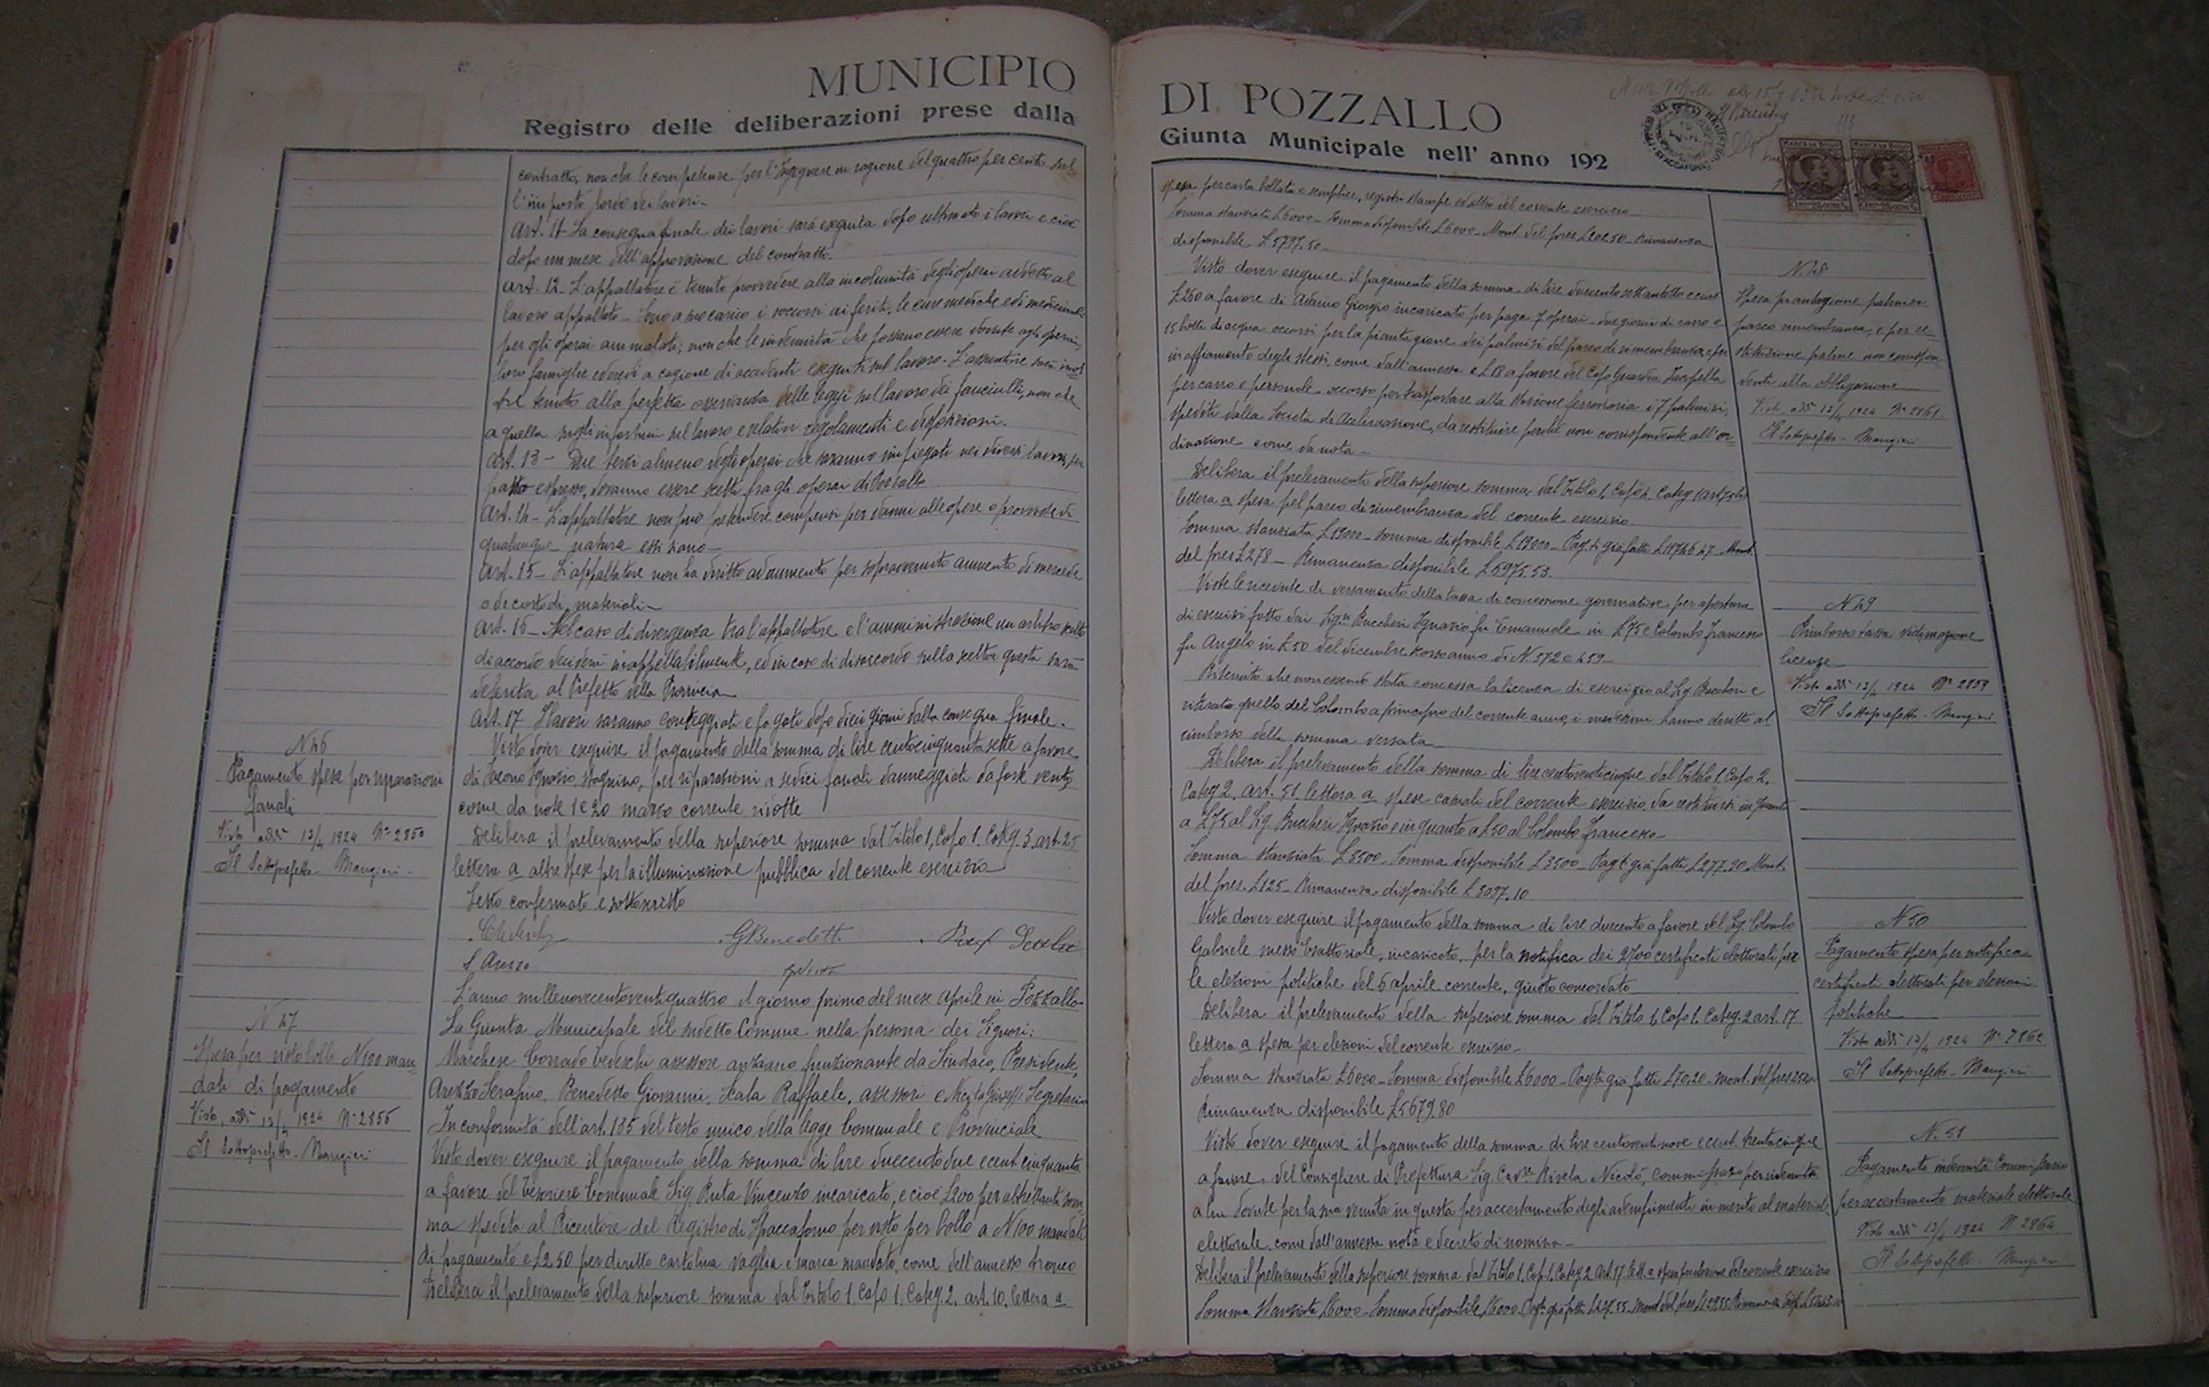 MUNICIPIO
Registro delle deliberazioni prese dalla
contratto, non che le competenze per l'Ingegnere in ragione del quattro per cento sul
l'importo lordo dei lavori.
Art. 11 - La consegna finale dei lavori sarà eseguita dopo ultimati i lavori e cioè
dopo un mese dell'approvazione del contratto.
Art. 12 - L'appaltatore è tenuto provvedere alla incolumità degli operai addetti al
lavoro appaltato - sono a suo carico i soccorsi ai feriti, le cure mediche e di medicinali
per gli operai ammalati, non che le indennità che possano essere dovute agli operai,
loro famiglie ed eredi a cagione di accidenti eseguiti sul lavoro. L'assuntore sarà inol
tre tenuto alla perfetta osservanza delle leggi sul lavoro dei fanciulli, non che
a quella sugli infortuni sul lavoro e relativi regolamenti e disposizioni.
Art. 13 - Due terzi almeno degli operai che saranno impiegati nei diversi lavori, per
patto espresso, dovranno essere scelti fra gli operai di Pozzallo
Art. 14 - L'appaltatore non può pretendere compensi per danni alle opere o provviste di
qualunque natura essi siano -
Art. 15 - L'appaltatore non ha diritto ad aumento per sopravvenuto aumento di mercede
o di costo di materiali -
Art. 16 - Nel caso di divergenza tra l'appaltatore e l'amministrazione un arbitro scelto
di accordo deciderà inappellabilmente, ed in caso di disaccordo sulla scelta questa sarà
deferita al Prefetto della Provincia
Art. 17 I lavori saranno conteggiati e pagati dopo dieci giorni dalla consegna finale.
N 46
Pagamento spese per riparazioni
fanali
Visto addì 12/4 1924 N° 2850
Il Sottoprefetto - Mangieri -
Visto dover eseguire il pagamento della somma di lire centocinquantasette a favore
di Ignazio stagnino, per riparazioni a sedici fanali danneggiati da forte vento,
come da note 1 e 20 marzo corrente ridotte
Delibera il prelevamento della superiore somma dal Titolo 1, Capo 1. Categ. 3. art. 25
lettera a altre spese per la illuminazione pubblica del corrente esercizio
Letto confermato e sottoscritto
GBenedetti
S Arezzo
L'anno millenovecentoventiquattro il giorno primo del mese Aprile in Pozzallo -
N 47
Spesa per visto bollo N 100 man-
dati di pagamento
Visto, addì 12/4 1924 N° 2856
Il Sottoprefetto - Mangieri
La Giunta Municipale del sudetto Comune nella persona dei Signori:
Marchese Corrado Tedeschi assessore anziano funzionante da Sindaco, Presidente,
Arezzo Serafino, Benedetto Giovanni, Scala Raffaele, assessori e Giuseppe Segretario
In conformità dell'art. 135 del testo unico della legge Comunale e Provinciale
Visto dover eseguire il pagamento della somma di lire duecentodue e cent cinquanta
a favore del Tesoriere Comunale Sig. Ruta Vincenzo incaricato, e cioè £200 per altrettanta som-
ma spedita al Ricevitore del Registro di Spaccaforno per visto per bollo a N 100 mandati
di pagamento e £2.50 per diritto cartolina vaglia e marca mandato, come dell'annesso
Delibera il prelevamento della superiore somma dal Titolo 1. Capo 1. Categ. 2. art. 10. lettera a
DI POZZALLO
Giunta Municipale nell'anno 192
MARCA DA BOLLO
MARCA DA BOLLO
spesa per carta bollata e semplice, registri stampe ed altro del corrente esercizio -
Somma stanziata £6000 - Somma disponibile £6000 - Mont. del pres £202.50 - Rimanenza
disponibile £5797.50
N 48
Spesa piantagione palmizi
parco rimembranza, e per re-
stituzione palme non corrispon
denti alla obbligazione
Visto addì 12/4 1924 N° 2861
Il Sottoprefetto - Mangieri
Visto dover eseguire il pagamento della somma di lire duecentosettantotto e cioè
£260 a favore di Giorgio incaricato per paga 7 operai - due giorni di carro e
15 botti di acqua occorsi per la piantagione dei palmizi del parco di rimembranza, e per
inaffiamento degli stessi come dall'annessa e £18 a favore del Capo Guardia
per carro e personale occorso per trasportare alla stazione ferroviaria i 7 palmizi,
spediti dalla Società di Acclimazione, da restituire perchè non corrispondenti all'or-
dinazione come da nota -
Delibera il prelevamento della superiore somma dal Titolo 1, Capo
lettera a spesa pel parco di rimembranza del corrente esercizio
del pres £278 - Rimanenza disponibile £6975.53.
N 49
Rimborso tassa vidimazione
licenze
Visto addì 12/4 1924 N° 2859
Il Sottoprefetto - Mangieri
Viste le ricevute di versamento della tassa di concessione governativa per apertura
di esercizi fatto dai Sigri Buccheri Ignazio fu Emanuele in £75 e Colombo Francesco
fu Angelo in £50 del dicembre scorso anno di N. 372 e 459 -
Ritenuto che non essendo stata concessa la licenza di esercizio al Sig Buccheri e
ritirata quella del Colombo a principio del corrente anno, i medesimi hanno diritto al
rimborso della somma versata
Delibera il prelevamento della somma di lire centoventicinque dal Titolo 1. Capo 2.
Categ 2. Art. 51. lettera a spese casuali del corrente esercizio, da restituirsi in quanto
a £75 al Sig. Buccheri Ignazio e in quanto a £50 al Colombo Francesco -
Somma stanziata £3500 - Somma disponibile £3500 - Pagti già fatti £277.90 Mont.
del pres. £125 - Rimanenza disponibile £3097.10
N 50
Pagamento spesa per notifica
certificati elettorali per elezioni
politiche
Visto addì 12/4 1924 N° 2862
Il Sottoprefetto - Mangieri
Visto dover eseguire il pagamento della somma di lire duecento a favore del Sig. Colombo
Gabriele messo Esattoriale, incaricato, per la notifica dei 2700 certificati elettorali per
le elezioni politiche del 6 aprile corrente, giusto concordato
Delibera il prelevamento della superiore somma dal Titolo 1, Capo 1. Categ. 2 art. 17
lettera a spesa per elezioni del corrente esercizio -
Somma stanziata £6000 - Somma disponibile £6000 - Pagti già fatti £120.20 - mont. del pres £200
Rimanenza disponibile £5679.80
N. 51
Pagamento indennità Commissario
per accertamento materiale elettorale
Visto addì 12/4 1924 N° 2864
Il Sottoprefetto - Mangieri
Visto dover eseguire il pagamento della somma di lire centoventinove e cent. trentacinque
a favore del Consigliere di Prefettura Sig. Cav. Nicolò, commissario per indennità
a lui dovute per la sua venuta in questa per accertamento degli adempimenti in merito al materiale
elettorale, come dall'annessa nota e decreto di nomina -
Delibera il prelevamento della superiore somma dal Titolo 1. Capo 1. Categ 2 art. 17 lett. a spesa per elezioni del corrente esercizio
Somma stanziata £6000 - Somma disponibile £6000